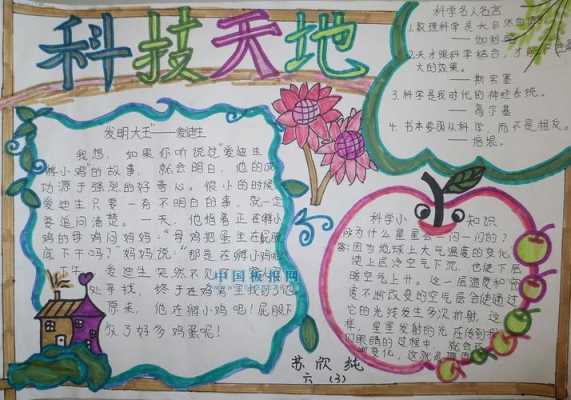 科技天地
发明大王"——爱迪生
我想，如果你听说过"爱迪生
孵小鸡"的故事，就会明白，他的成
功源于强烈的好奇心。很小的时候
爱迪生只要一有不明白的事，就一定
要追问清楚。一天，他指着正在孵小
鸡的母鸡问妈妈："母鸡把蛋坐在屁股
底下干吗？"妈妈说："那是在孵小鸡呢
爱迪生突然不见了
处寻找，终于在鸡窝里找到了他
原来，他在孵小鸡呢！屁股下
放了好多鸡蛋呢！
中国板报网
科学名人名言
1.数理科学是大自然的
——伽利略
2.天才跟科学结合，才能
大的效果。
——斯宾塞
3.科学是我时代的神经系统。
——高尔基
4.书本要顺从科学，而不是相反。
——培根。
科学小知识
为什么星星会一闪一闪的？
答:因为地球上大气温度的变化
使上层冷空气下沉，也使下层
暖空气上升。这一层温度和密
度不断改变的空气层会使通过
它的光线发生多次折射，这
样，星星发射的光在传到我
们眼睛的过程中，就会
变化，这就
苏欣纯
六（3）